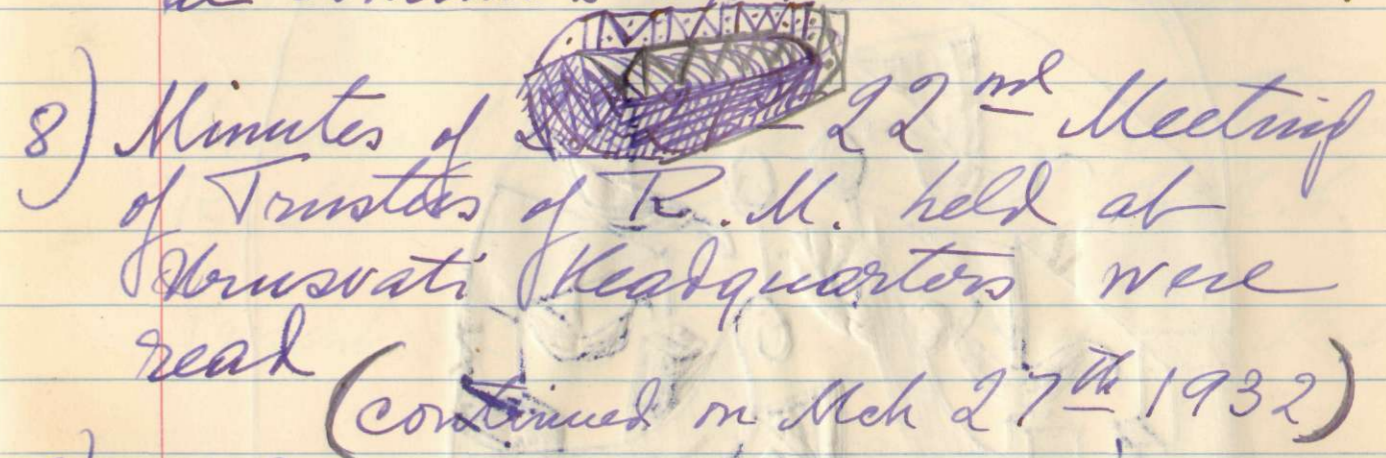 8) Minutes of 22nd Meeting
of Trustees of R.M. held at
Urusvati Headquarters were
read
(continued on Mch 27th 1932)